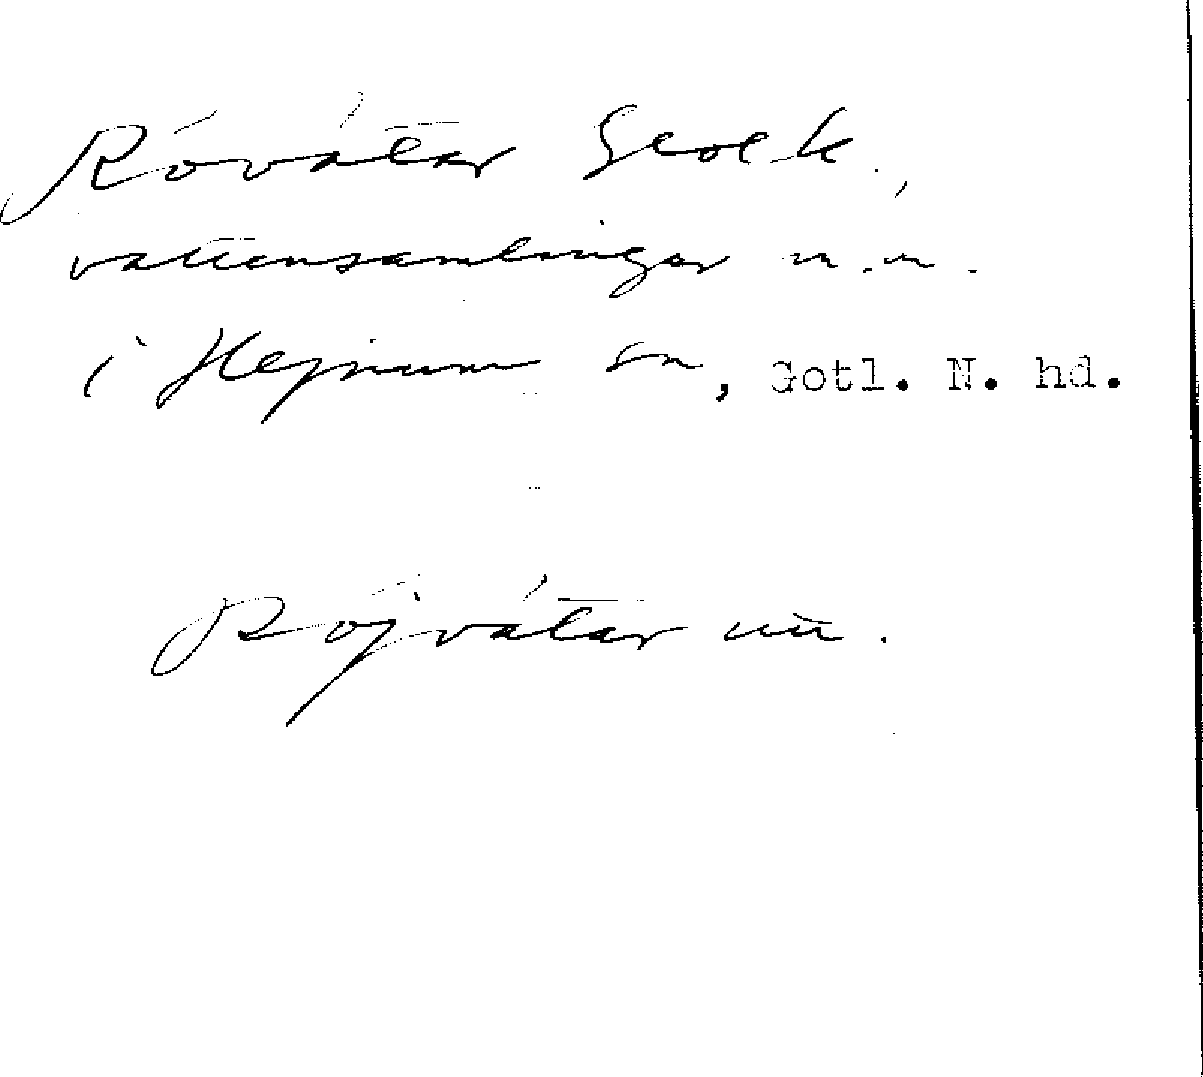 Rövätar Geol k.,
vattensamlingar m.m.
i Hejnum sn, Gotl. N. hd.
Röjvätar nu.